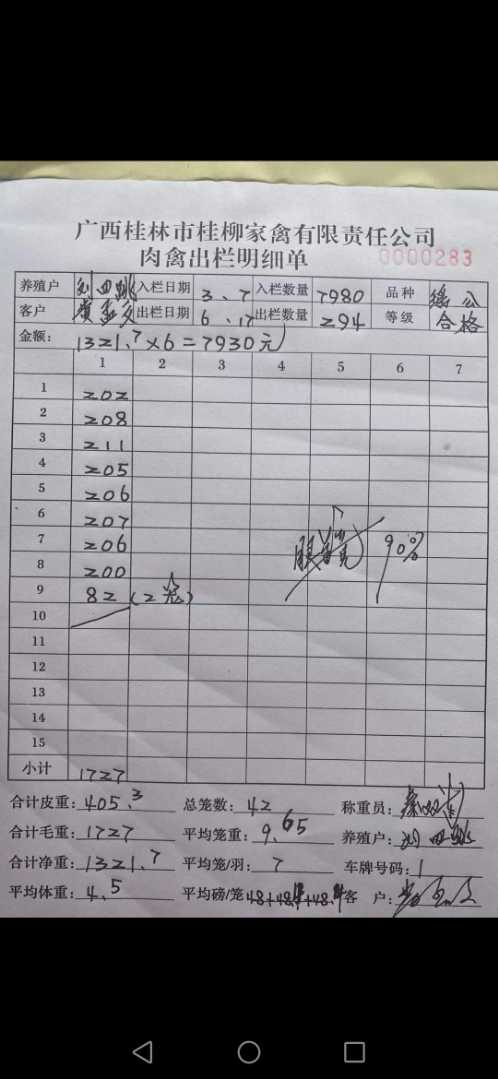 广西桂林市桂柳家禽有限责任公司
肉禽出栏明细单 0000283
养殖户 刘四姚 入栏日期 3、7 入栏数量 7980 品种 瑶公
客户 出栏日期 6、17 出栏数量 294 等级 合格
金额: 1321.7×6=7930元
1 2 3 4 5 6 7
1 202
2 208
3 211
4 205
5 206
6 207
7 206 90%
8 200
9 82 (2笼)
10
11
12
13
14
15
小计 1727
合计皮重: 405.3 总笼数: 42 称重员:
合计毛重: 1727 平均笼重: 9.65 养殖户: 刘四姚
合计净重: 1321.7 平均笼/羽: 7 车牌号码: 1
平均体重: 4.5 平均磅/笼 客户: